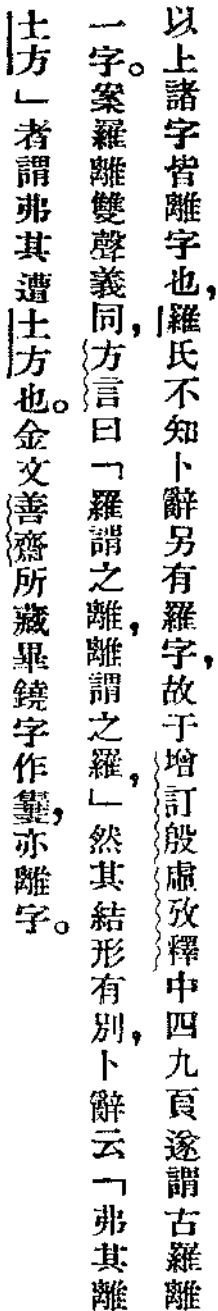 以上諸字皆離字也，羅氏不知卜辭另有羅字，故于增訂殷虛攷釋中四九頁遂謂古羅離
一字。案羅離雙聲義同，方言曰「羅謂之離，離謂之羅，」然其結形有別，卜辭云「弗其離
土方」者謂弗其遭土方也。金文善齋所藏畢鐃字作，亦離字。